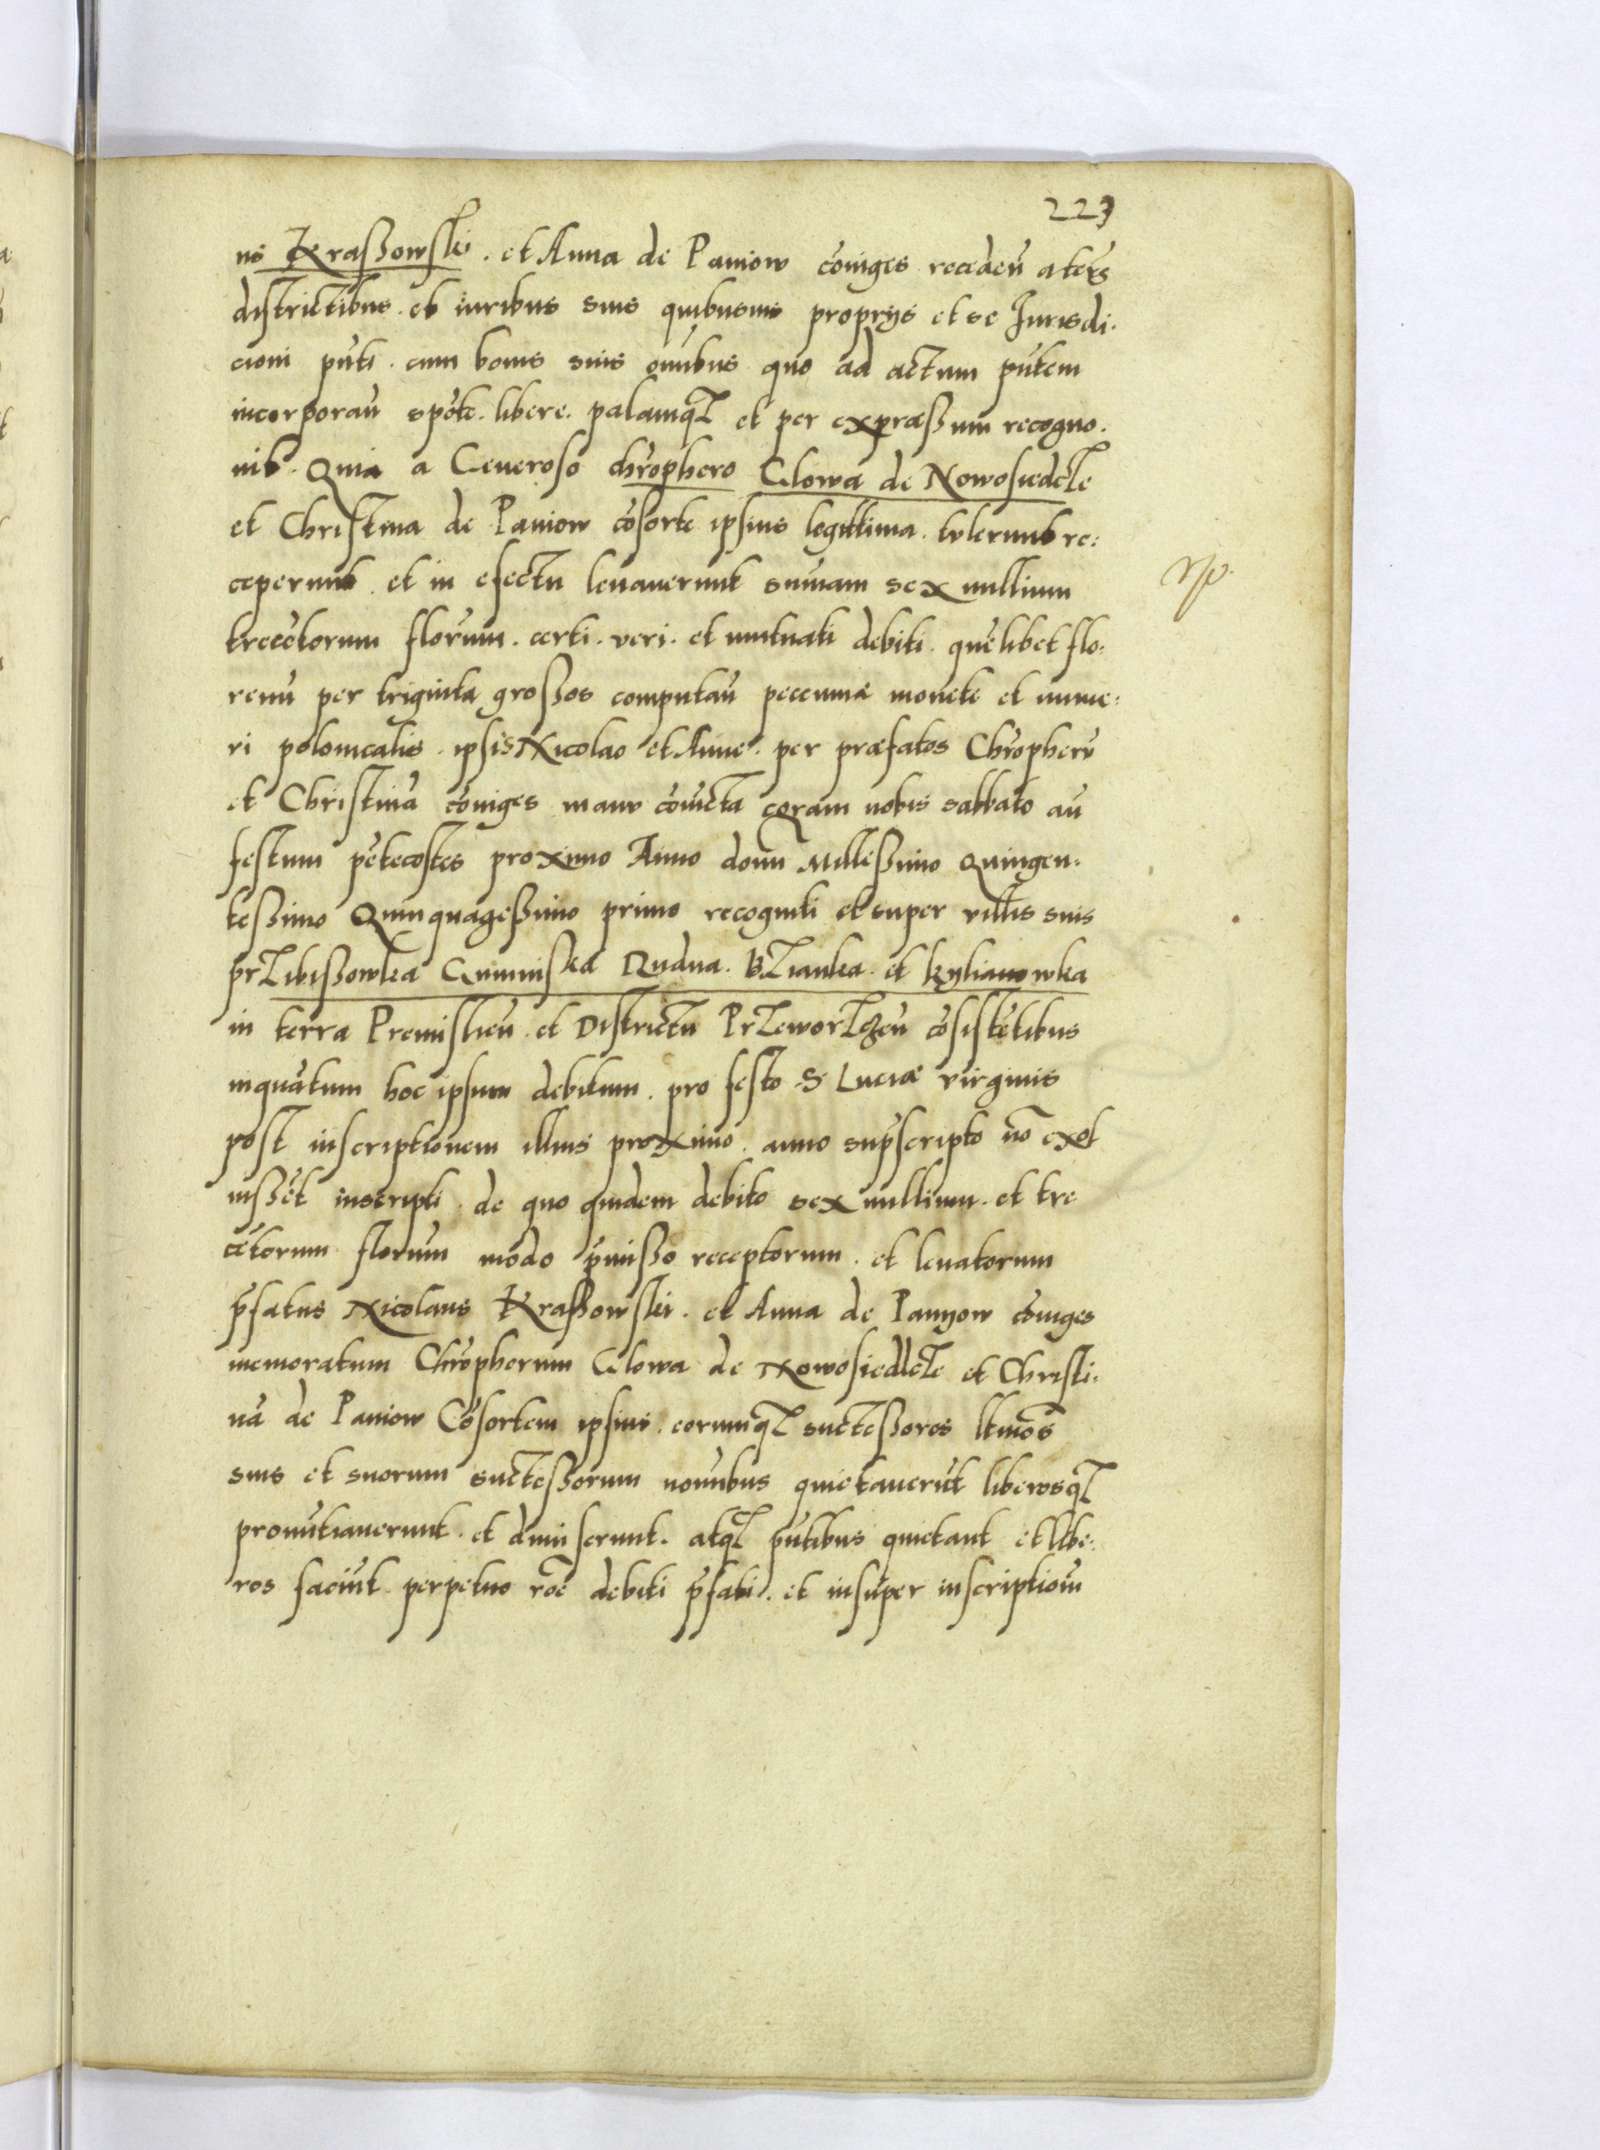 223
us Kraßowski . et Anna de Paniow cōiuges recedeñ a terrīs
districtibus . et iuribus suis quibusuis proprijs et se Jurisdi.
cioni pñti . cum bonis suis oīnibus quo ad actum pñtem
incorporañ spōte . libere . palamqȝ et per expræßum recogno.
uit . Quia a Generoso chrōphero Glowa de Nowosiedcze
et Christina de Paniow cōsorte ipsius legittima . tulerunt re:
ceperunt . et in efectu leuauerunt sum̄am sex millium
trecētorum florūm . certi . veri . et mutuati debiti . quēlibet flo:
renū per triginta großos computañ pecuniæ monete et nume:
ri polonicalis . ipsis Nicolao et Anne . per præfatos Chrōpherū
et Christinā cōiuges manu cōiūcta coram nobis sabbato añ
festum pētecostes proximo Anno domi Milleßimo Quingen:
teßimo Quinquageßimo primo recogniti et super villis suis
przibißowka Gniniska Rudna . Bzianka . et kylianowka
in terra Premislieñ . et Districtu Przeworzczeñ cōsistētibus
inquātum hoc ipsum debitum . pro festo S Luciæ virginis
post inscriptionem illius proximo . anno supscripto nō exol
uißēt inscripti . de quo quidem debito sex millium . et tre
cētorum florūm modo p̄mißo receptorum . et leuatorum
p̄fatus Nicolaus Kraßowski . et Anna de Panyow cōiuges
memoratum Chrōpherum Glowa de Nowosiedlcze et Christi:
nā de Paniow Cōsortem ipsius . eorumqȝ succeßores ltimōs
suis et suorum succeßorum nom̄ibus quietauerūt liberosqȝ
pronūtiauerunt . et dimiserunt . atqȝ pñtibus quietant et libe:
ros faciūt perpetuo rōe debiti p̄fati . et insuper inscriptiom̄